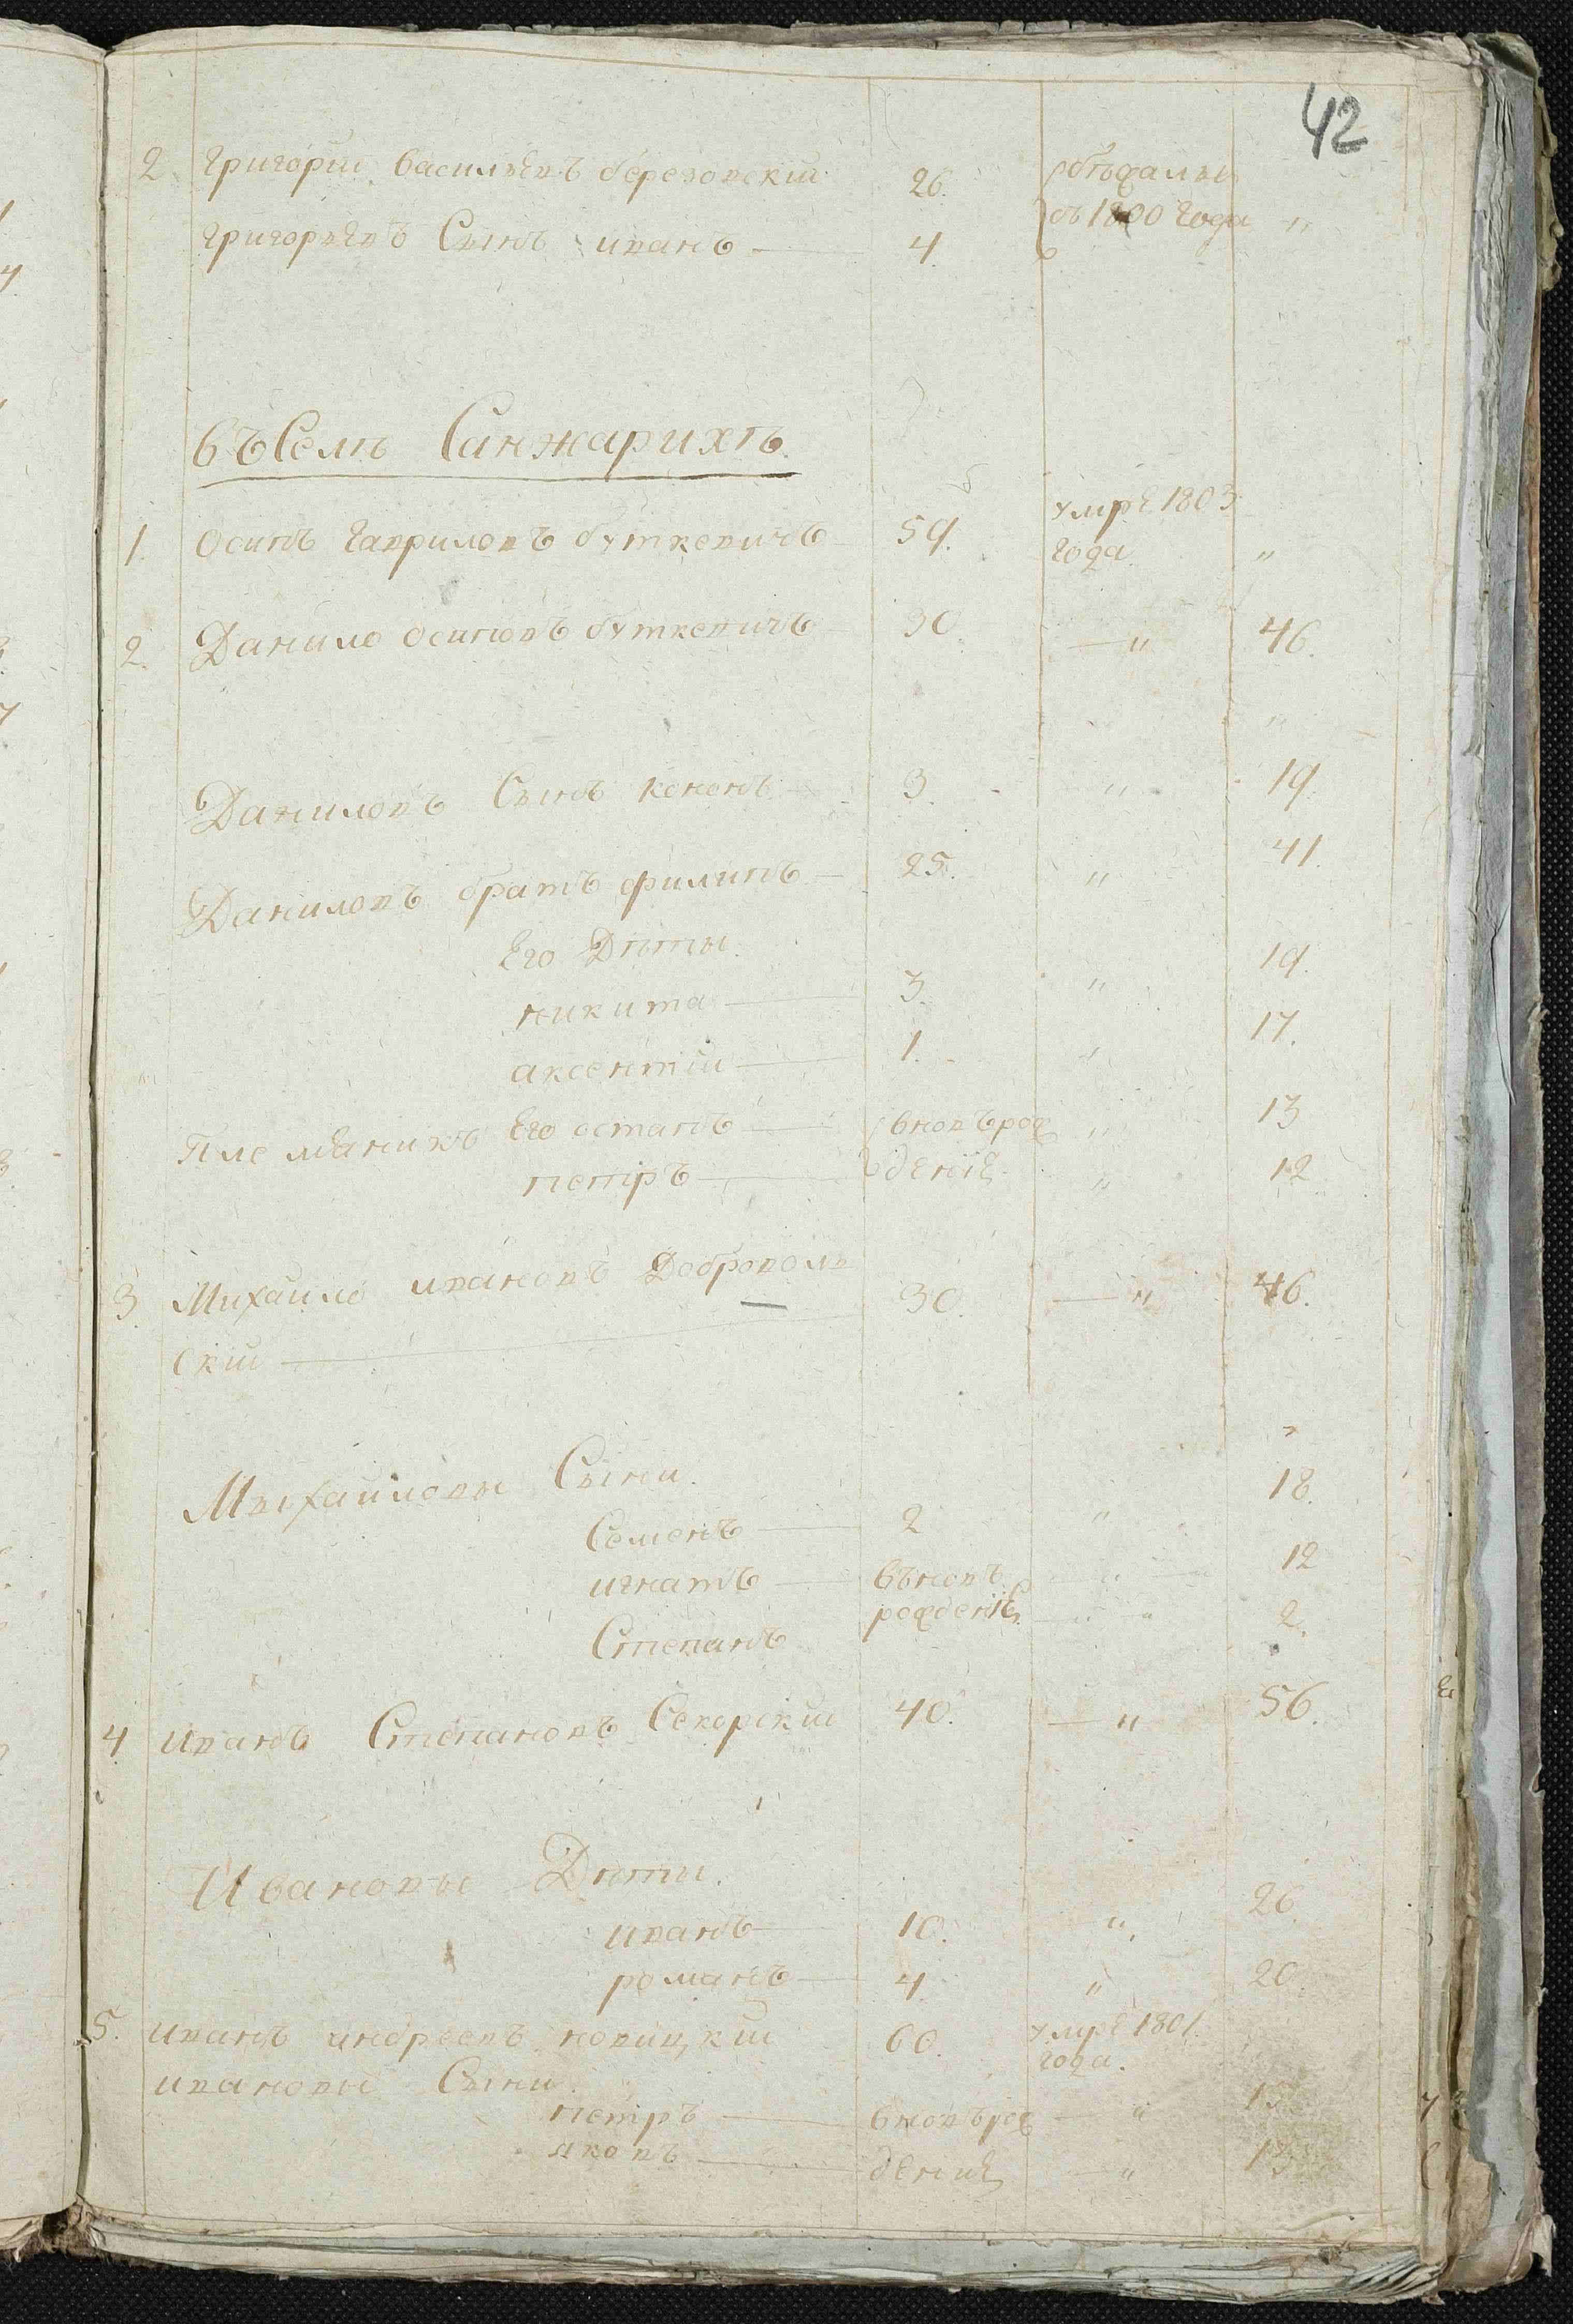 42
2. григорій васильевъ березовскій 26. збѣжалы
григорьевъ Сынъ иванъ — 4. въ 1800 года „
въ Селѣ Санжарихѣ.
1. осипъ гавриловъ буткевичъ 59. умре 1803
года „
2. Данило осиповъ буткевичъ 30. — „ 46.
„
Даниловъ Сынъ кононъ — 3. „ 19.
Даниловъ братъ филипъ — 25. „ 41.
Его Дѣты.
никита — 3. „ 19.
аксентій — 1. „ 17.
Племяникъ Его остапъ — вновърож „ 13
петръ — денніе „ 12
3. Михайло ивановъ Доброволь 30. — „ 46.
скій —
Михайловы Сыни.
Семенъ — 2 „ 18.
игнатъ — въновъ „ 12
Степанъ рожденіе — „ 2.
4 иванъ Степановъ Секорскій 40. — „ 56.
Ивановы Дѣти.
иванъ — 10. „ 26.
романъ — 4. „ 20.
5. иванъ андреевъ новицкій 60. умре 1801.
ивановы Сыни года.
петръ — вновърож — „
яковъ — деніе — „ 13